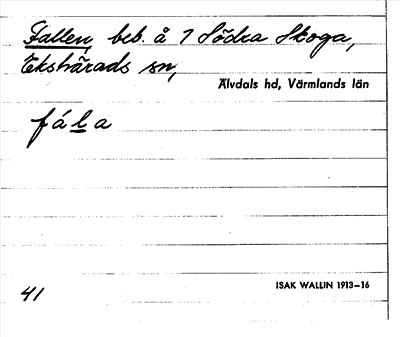 Fallen, beb. å 7 Södra Skoga,
Ekshärads sn,
Älvdals hd, Värmlands län
fála
ISAK WALLIN 1913–16
41